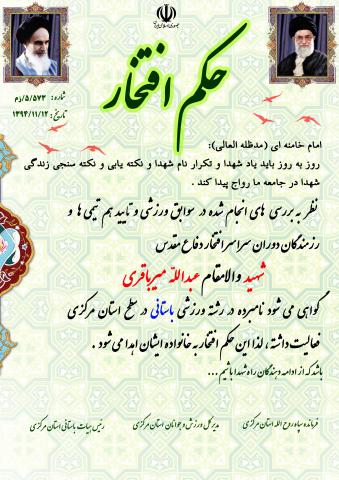 جمهوری اسلامی ایران
حکم افتخار
شماره : ۵/۵۷۳/ذم
تاریخ : ۱۳۹۴/۱۱/۱۲
امام خامنه ای (مدظله العالی):
روز به روز باید یاد شهدا و تکرار نام شهدا و نکته یابی و نکته سنجی زندگی
شهدا در جامعه ما رواج پیدا کند .
نظر به بررسی های انجام شده در سوابق ورزشی و تایید هم تیمی ها و
رزمندگان دوران سراسر افتخار دفاع مقدس
شهید والامقام عبداللّه میرباقری
گواهی می شود نامبرده در رشته ورزشی باستانی در سطح استان مرکزی
فعالیت داشته ، لذا این حکم افتخار به خانواده ایشان اهدا می شود .
باشد که از ادامه دهندگان راه شهدا باشیم ...
فرمانده سپاه روح الله استان مرکزی
مدیر کل ورزش و جوانان استان مرکزی
رئیس هیات باستانی استان مرکزی